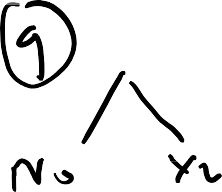 9
No Yes